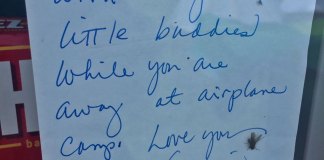 little buddies
while you are
away at airplane
camp. Love you